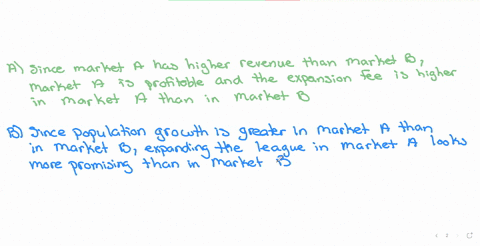 A) Since market A has higher revenue than market B,
market A is profitable and the expansion fee is higher
in market A than in market B
B) Since population growth is greater in market A than
in market B, expanding the league in market A looks
more promising than in market B